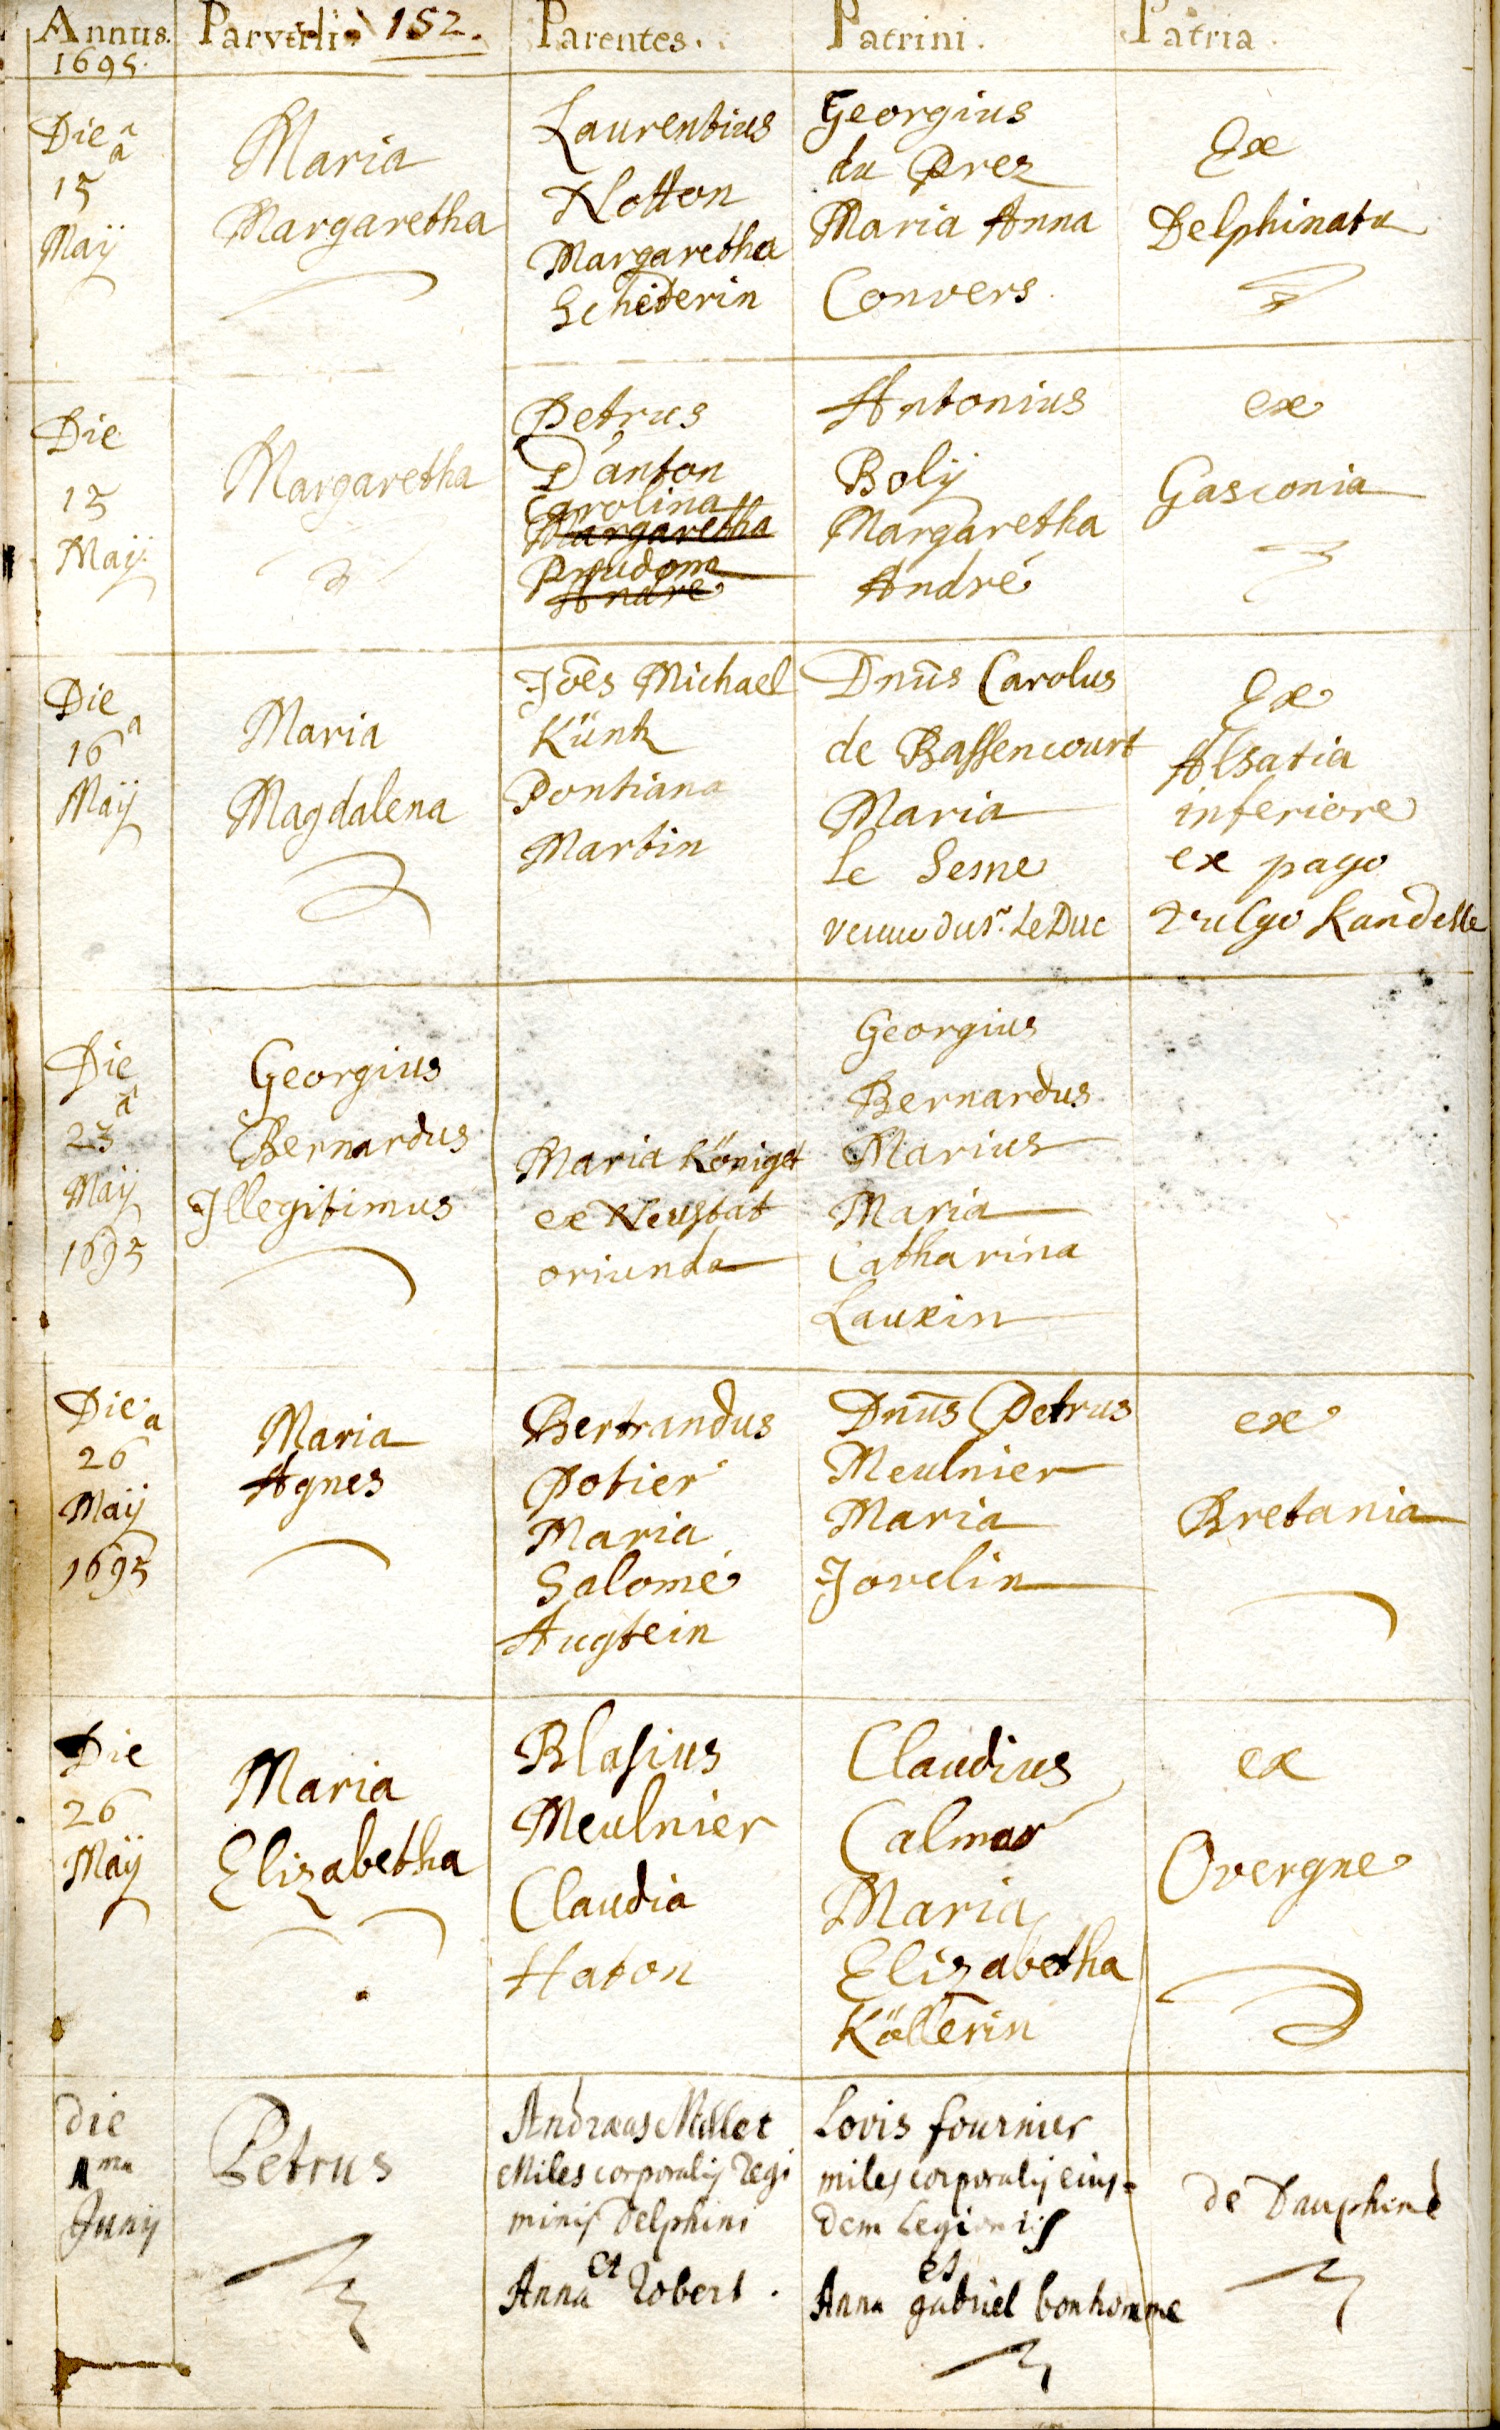 Annus. Parvuli 152. Parentes. Patrini. Patria.
1695.
Die a
15
Maÿ
Maria
Margaretha
Laurentius
Notton
Margaretha
Schiderin
Georgius
du Prez
Maria Anna
Convers.
Ex
Delphinatu
Die
15
Maÿ
Margaretha
Petrus
D'anton
Carolina
Margaretha
Prudom
André
Antonius
Bolÿ
Margaretha
André
ex
Gasconia
Die a
16
Maÿ
Maria
Magdalena
Joēs Michael
Künk
Pontiana
Martin
Dnūs Carolus
de Bassencourt
Maria
Le Sesne
veuue du sr. Le Duc
Ex
Alsatia
inferiore
ex pago
vulgo Kandelle
Die a
23
Maÿ
1695
Georgius
Bernardus
Illegitimus
Maria Königet
ex Neustat
oriunda
Georgius
Bernardus
Marius
Maria
Catharina
Lauxin
Die a
26
Maÿ
1695
Maria
Agnes
Bertrandus
Potier
Maria
Salomé
Augtein
Dnūs Petrus
Meulnier
Maria
Jovelin
ex
Bretania
Die
26
Maÿ
Maria
Elizabetha
Blasius
Meulnier
Claudia
Haton
Claudius
Calmar
Maria
Elizabetha
Köllerin
ex
Overgne
die
1ma
Junÿ
Petrus
Andraeas Millet
Miles corporalis Regi
minis Delphini
et
Anna Robert.
Lovis fournier
miles corporalis eius=
dem Legionis
et
Anna gabriel bonhomme
de Dauphiné